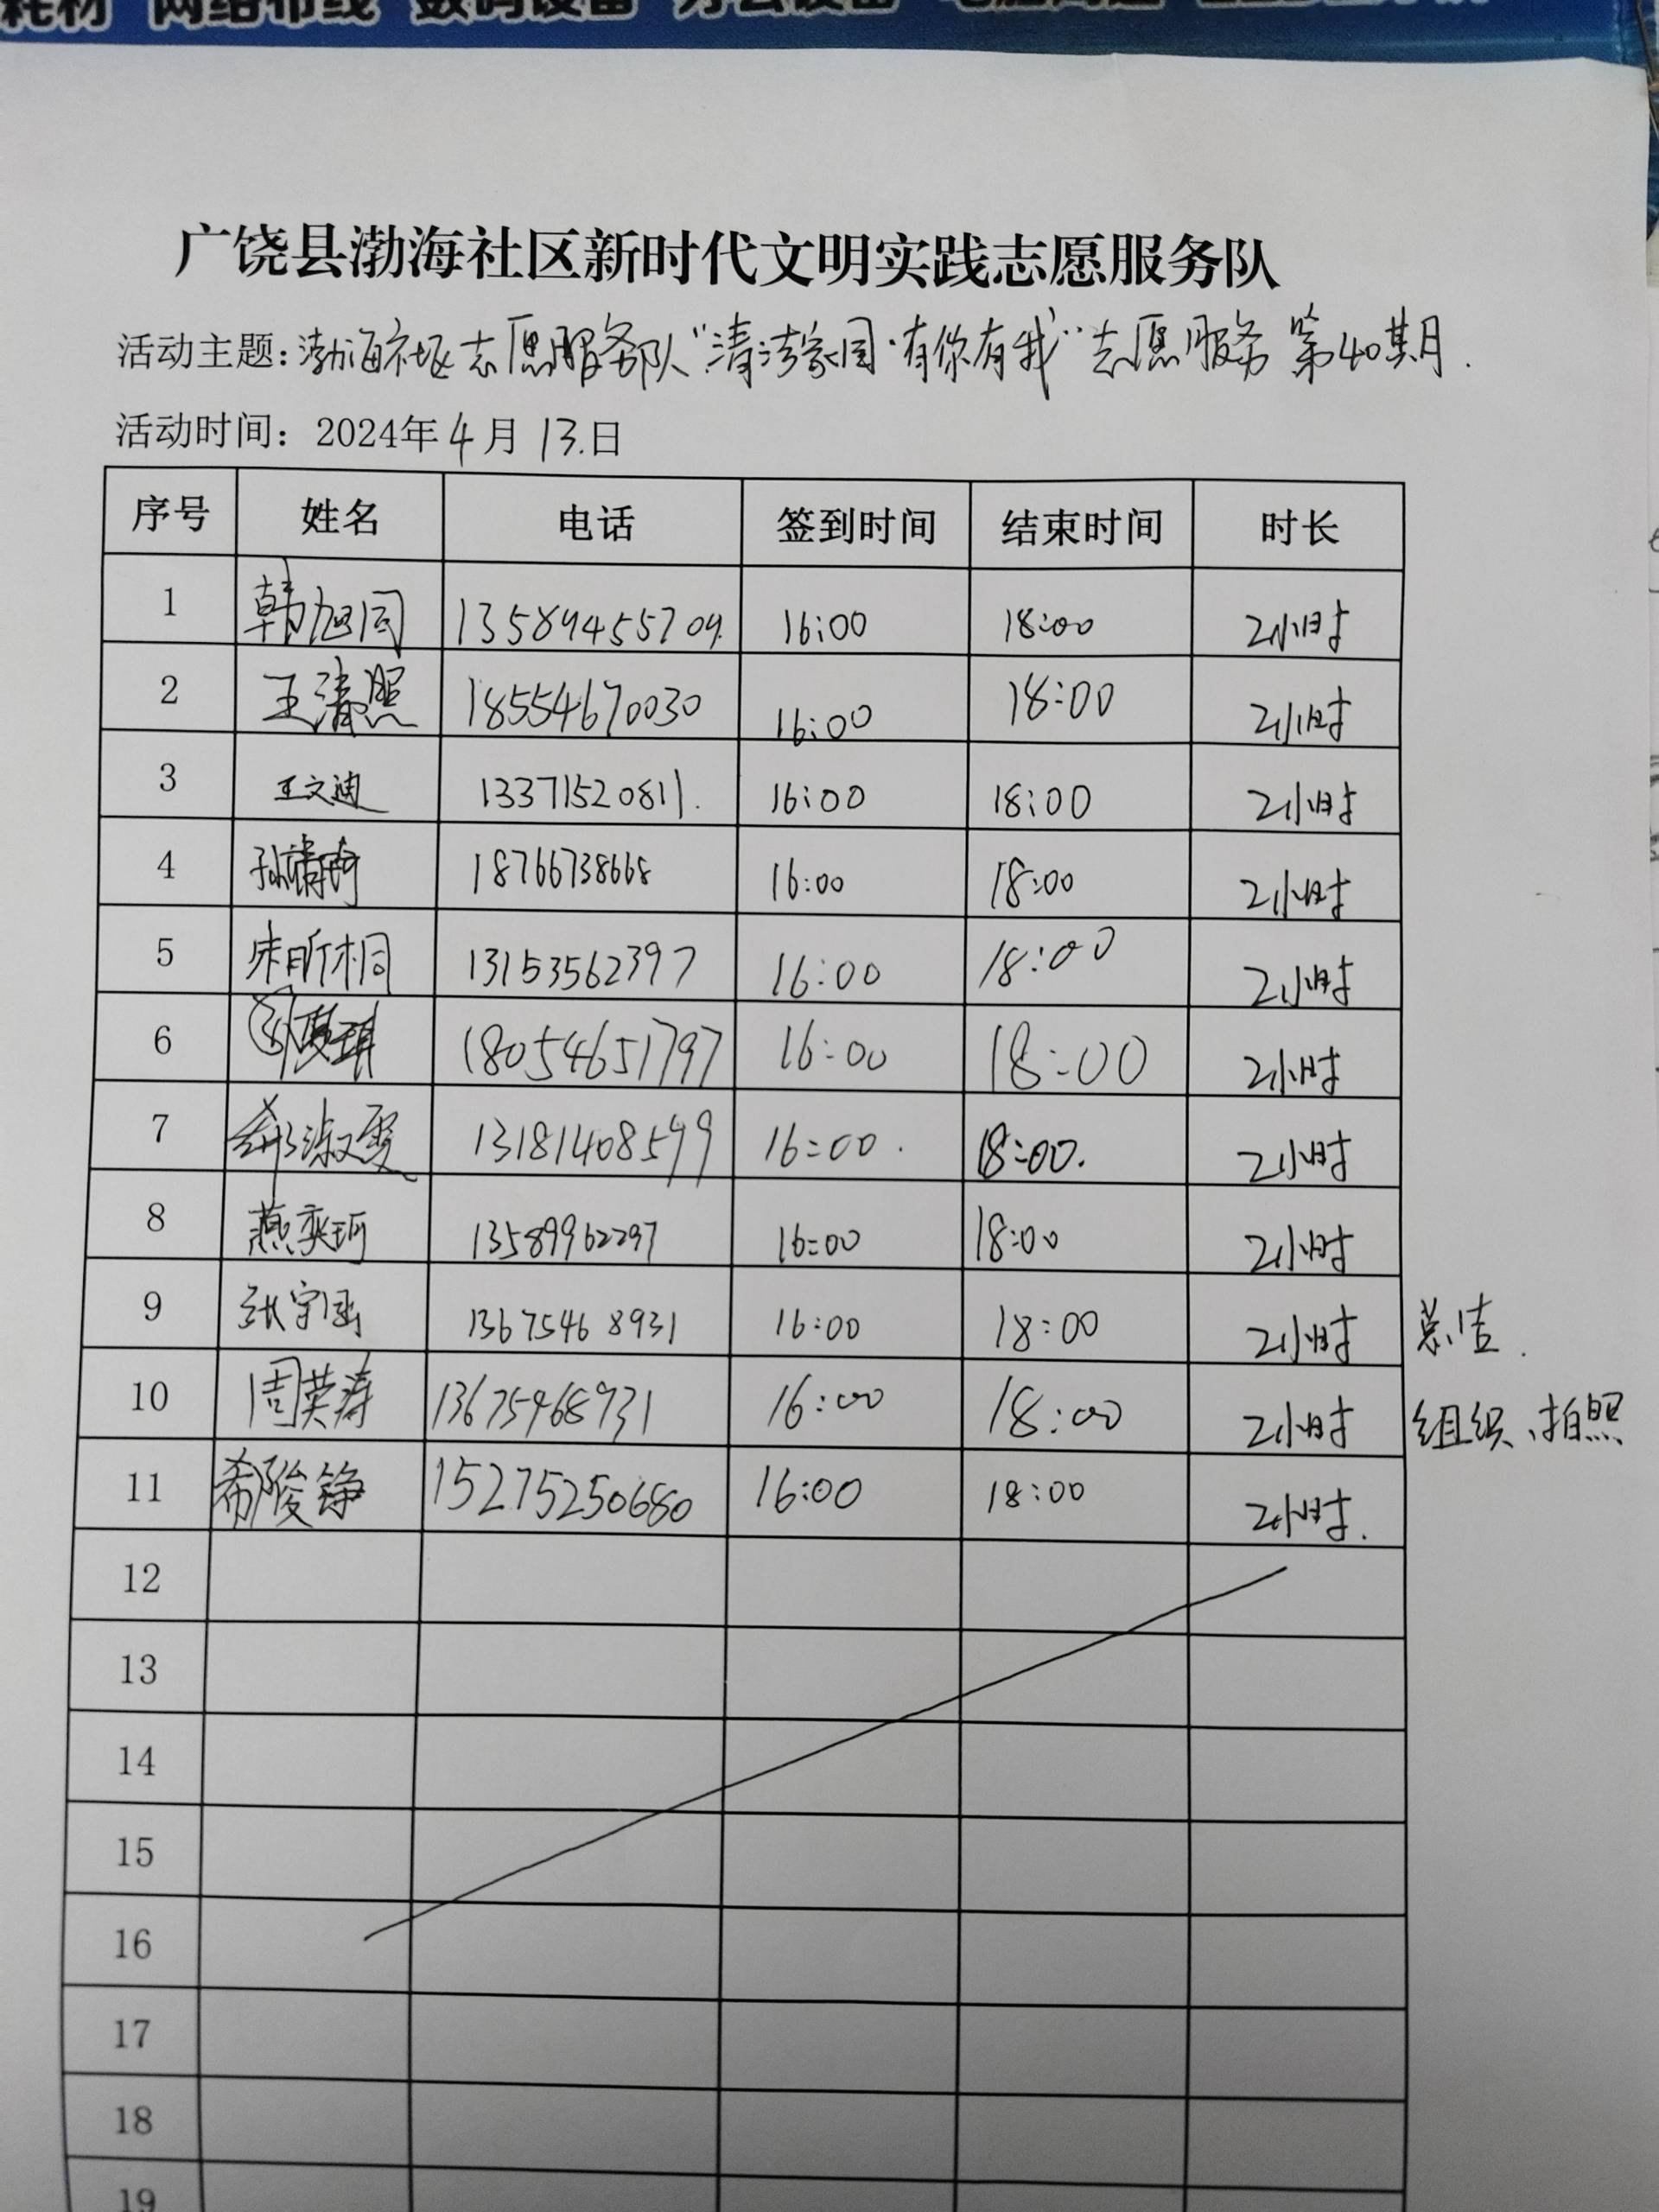 耗材 网络布线 数码设备 办公设备
广饶县渤海社区新时代文明实践志愿服务队
活动主题：渤海社区志愿服务队“清洁家园·有你有我”志愿服务第40期月.
活动时间：2024年4月13.日
序号 姓名 电话 签到时间 结束时间 时长
1 韩旭同 13589455709. 16:00 18:00 2小时
2 王清照 18554670030 16:00 18:00 2小时
3 王文迪 13371520811. 16:00 18:00 2小时
4 孙 18766738668 16:00 18:00 2小时
5 宋昕桐 13153562397 16:00 18:00 2小时
6 18054651797 16:00 18:00 2小时
7 淑雯 13181408599 16:00. 18:00. 2小时
8 燕奕珂 13589962297 16:00 18:00 2小时
9 张宇涵 13675468931 16:00 18:00 2小时 总结.
10 周英涛 13675468931 16:00 18:00 2小时 组织、拍照
11 希陵铮 15275250680 16:00 18:00 2小时.
12
13
14
15
16
17
18
19